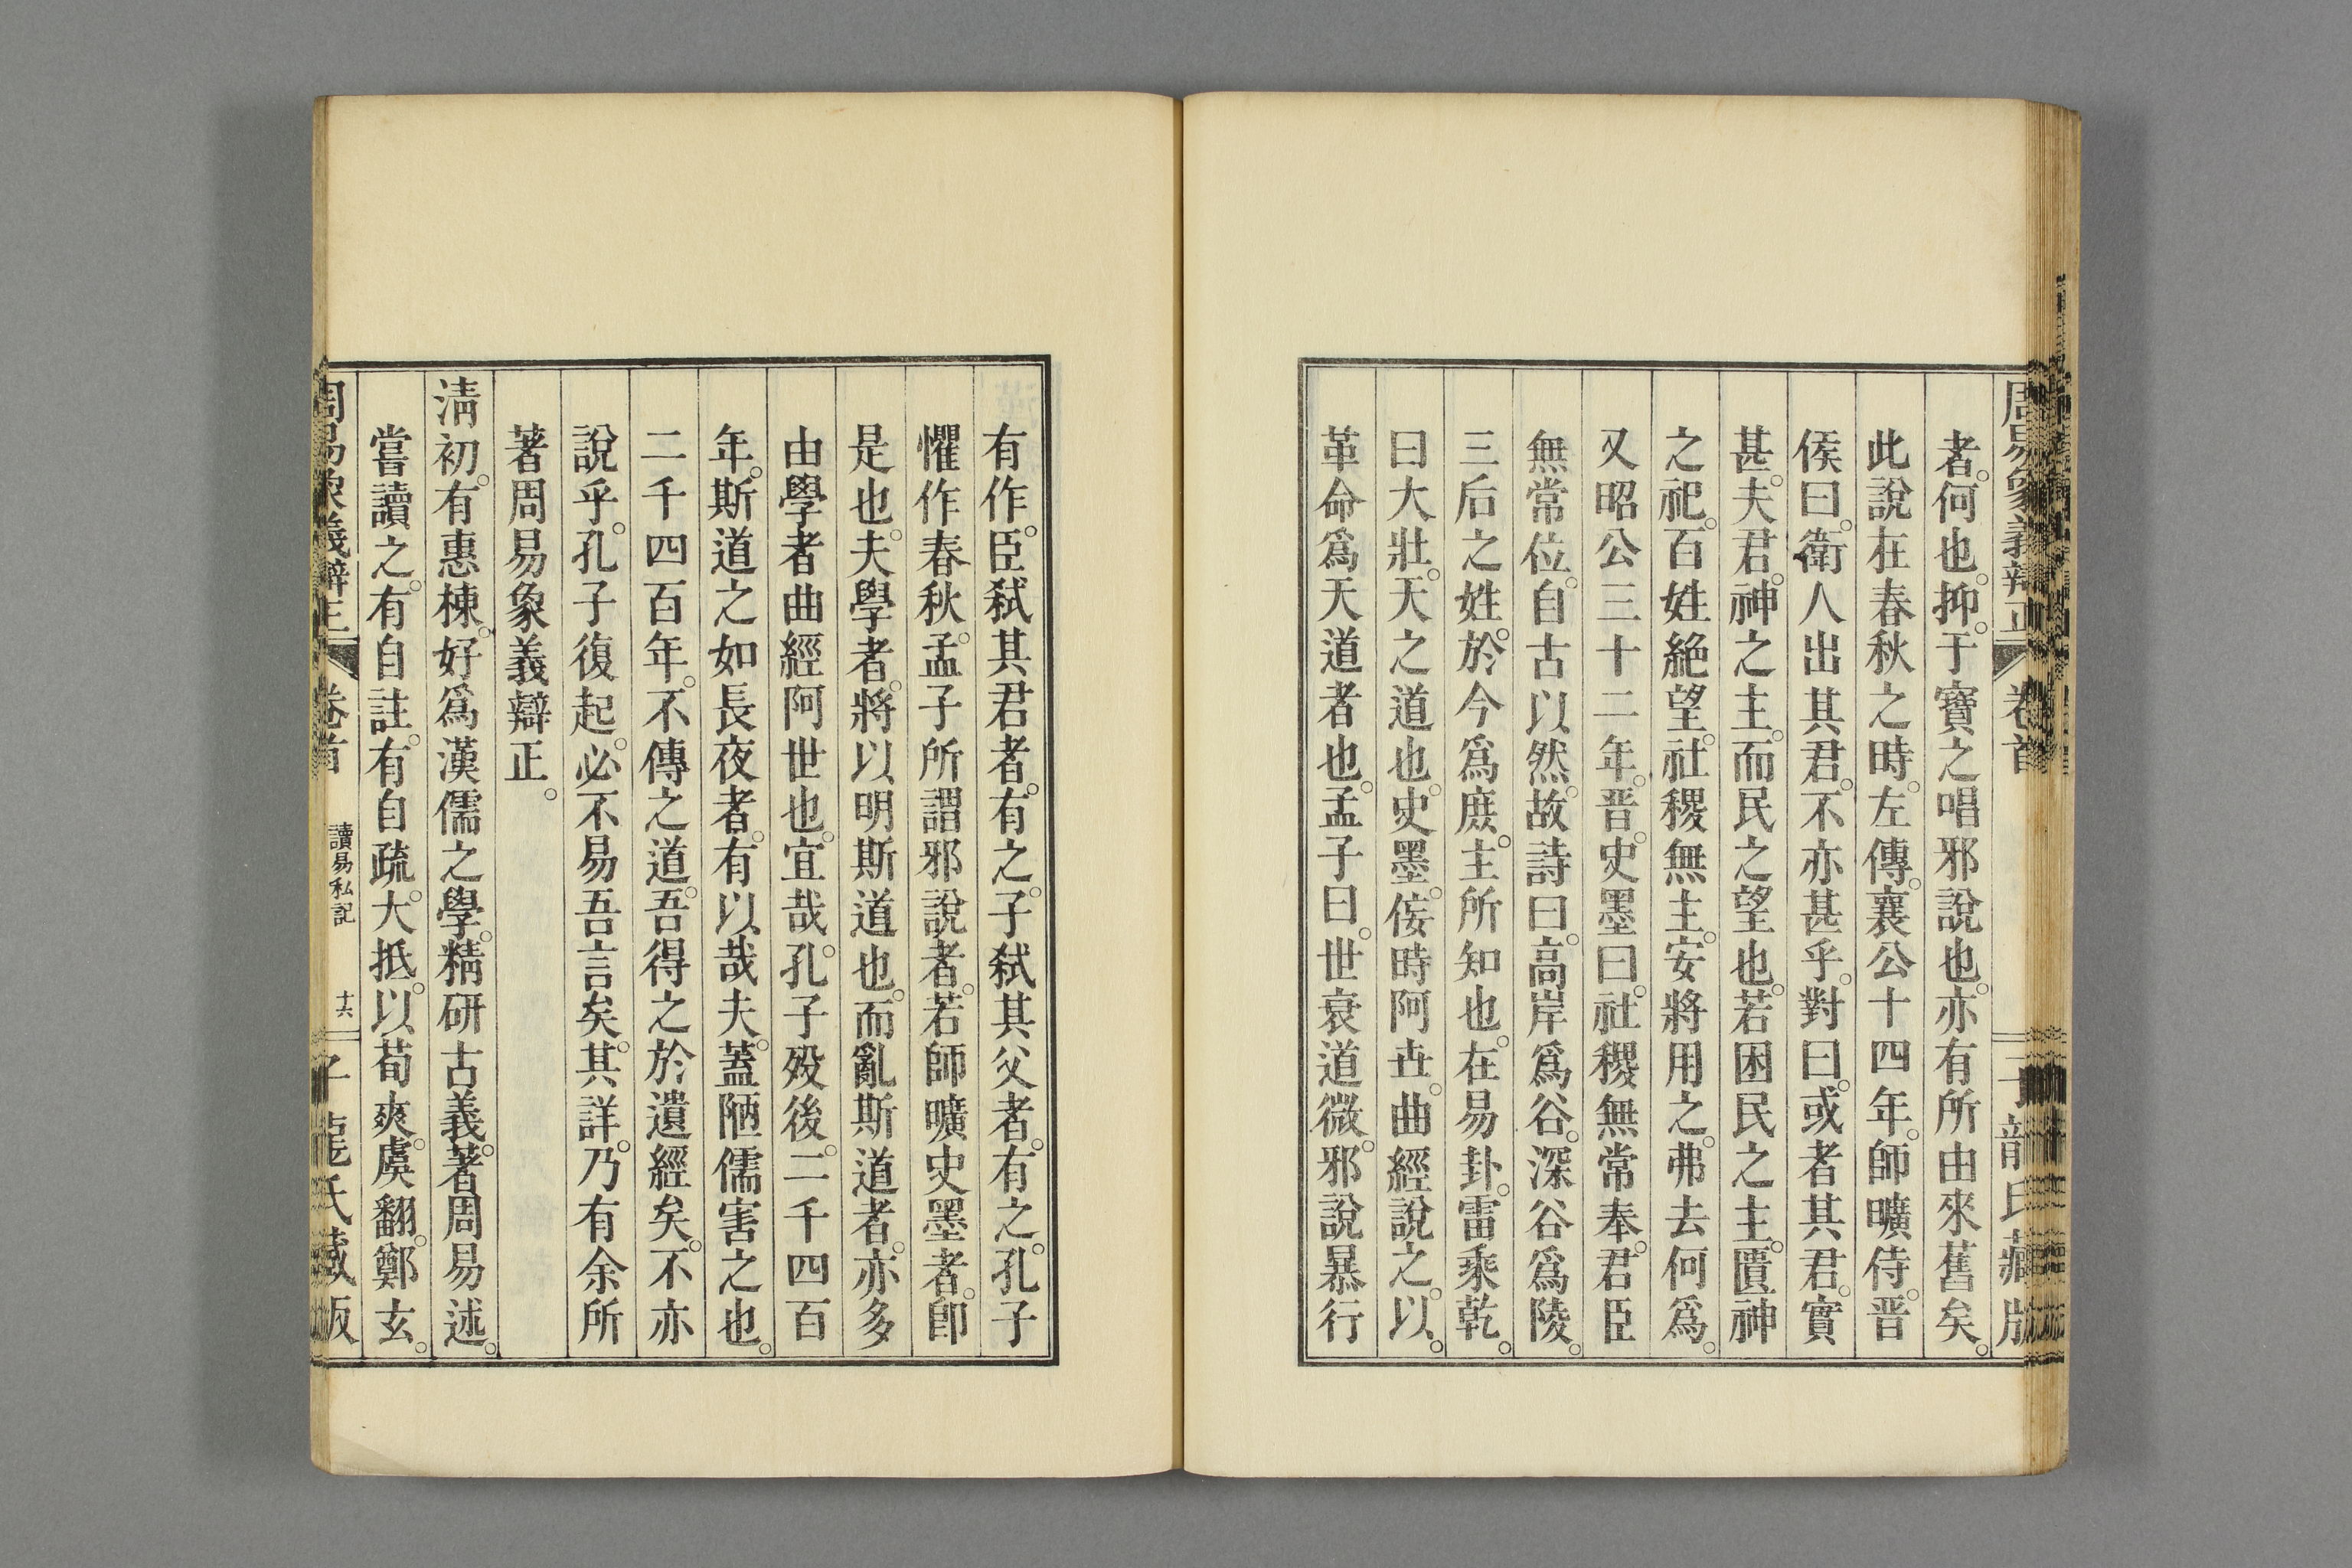 周易象義辯正 卷首
者。何也。抑。于寶之唱邪說也。亦有所由來舊矣。
此說在春秋之時。左傳。襄公十四年。師曠侍。晉
侯曰。衛人出其君。不亦甚乎。對曰。或者其君。實
甚。夫君。神之主。而民之望也。若困民之主。匱神
之祀。百姓絕望。社稷無主。安將用之。弗去何爲。
又昭公三十二年。晉。史墨曰。社稷無常奉。君臣
無常位。自古以然。故詩曰。高岸爲谷。深谷爲陵。
三后之姓。於今爲庶。主所知也。在易卦。雷乘乾。
曰大壯。天之道也。史墨。侫時阿世。曲經說之。以。
革命爲天道者也。孟子曰。世衰道微。邪說暴行
有作。臣弑其君者。有之。子弑其父者。有之。孔子
懼作春秋。孟子所謂邪說者。若師曠史墨者。卽
是也。夫學者。將以明斯道也。而亂斯道者。亦多
由學者曲經阿世也。宜哉。孔子歿後。二千四百
年。斯道之如長夜者。有以哉夫。蓋陋儒害之也。
二千四百年。不傳之道。吾得之於遺經矣。不亦
說乎。孔子復起。必不易吾言矣。其詳。乃有余所
著周易象義辯正。
淸初。有惠棟。好爲漢儒之學。精研古義。著周易述。
嘗讀之。有自註。有自疏。大抵。以荀爽。虞翻。鄭玄。
周易象義辯正 卷首 讀易私記 十六 子龍氏藏版